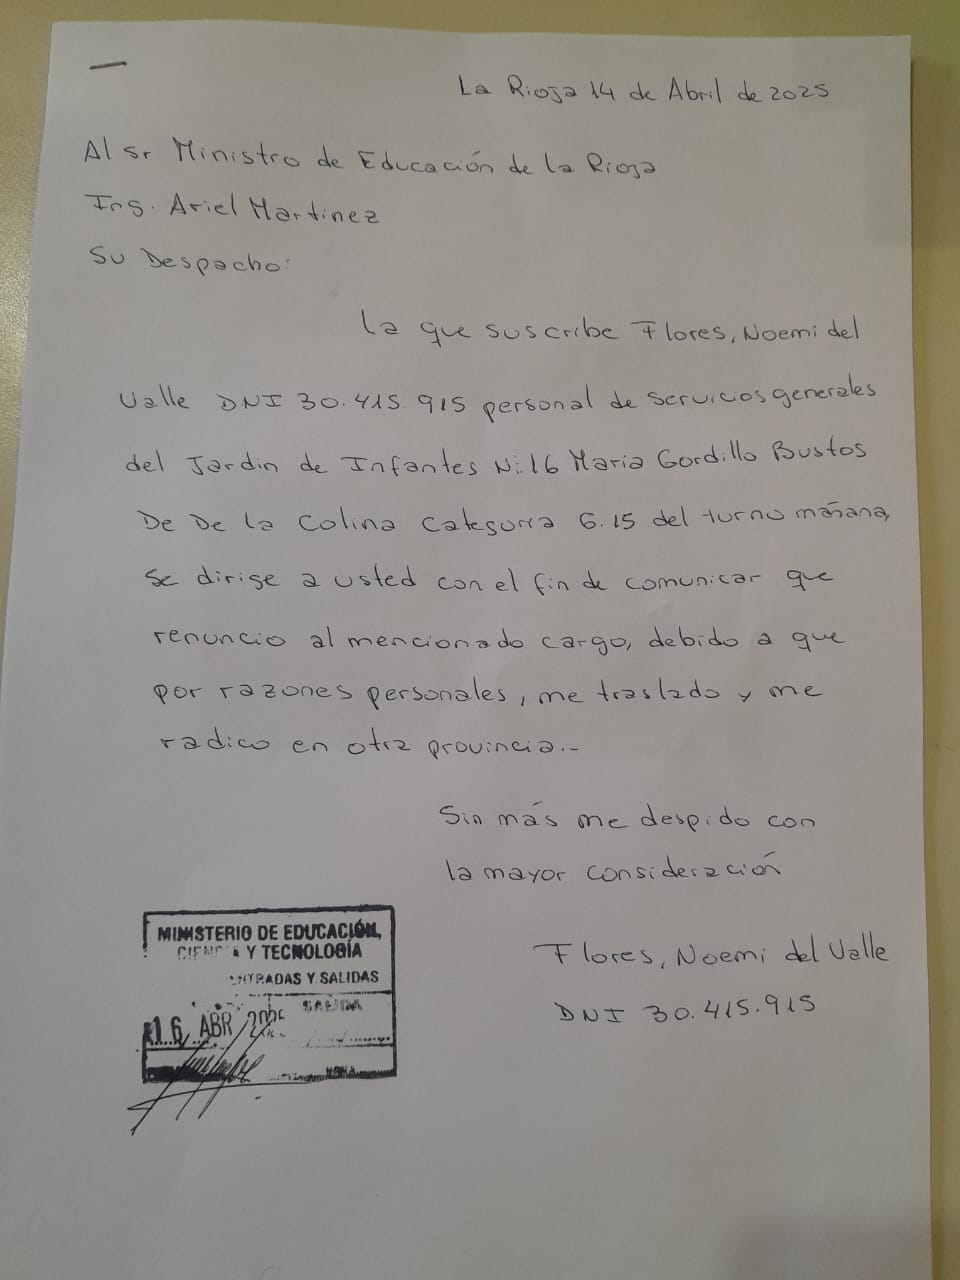 La Rioja 14 de Abril de 2025
Al Sr Ministro de Educación de la Rioja
Ing. Ariel Martinez
Su Despacho:
la que suscribe Flores, Noemi del
Valle DNI 30.415.915 personal de servicios generales
del Jardin de Infantes N:16 Maria Gordillo Bustos
De De la Colina Categoria 6.15 del turno mañana,
se dirige a usted con el fin de comunicar que
renuncio al mencionado cargo, debido a que
por razones personales, me traslado y me
radico en otra provincia.-
Sin más me despido con
la mayor consideración
Flores, Noemi del Valle
DNI 30.415.915
MINISTERIO DE EDUCACIÓN,
CIENCIA Y TECNOLOGÍA
ENTRADAS Y SALIDAS
SALIDA
16 ABR 2025
HORA